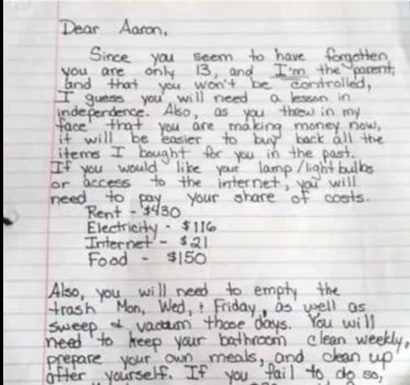 Dear Aaron,
Since you seem to have forgotten
you are only 13, and I'm the parent,
and that you won't be controlled,
I guess you will need a lesson in
independence. Also, as you threw in my
face that you are making money now,
it will be easier to buy back all the
items I bought for you in the past.
If you would like your lamp/lightbulbs
or access to the internet, you will
need to pay your share of costs.
Rent - $430
Electricity - $116
Internet - $21
Food - $150
Also, you will need to empty the
trash Mon, Wed, & Friday, as well as
sweep & vacuum those days. You will
need to keep your bathroom clean weekly,
prepare your own meals, and clean up
after yourself. If you fail to do so,